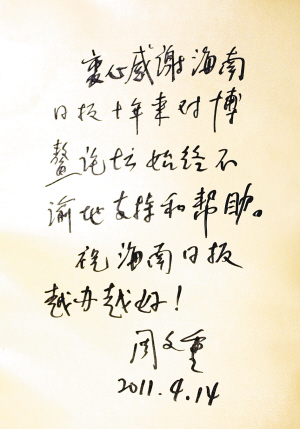 衷心感谢海南
日报十年来对博
鳌论坛始终不
渝地支持和帮助。
祝海南日报
越办越好！
周文重
2011.4.14